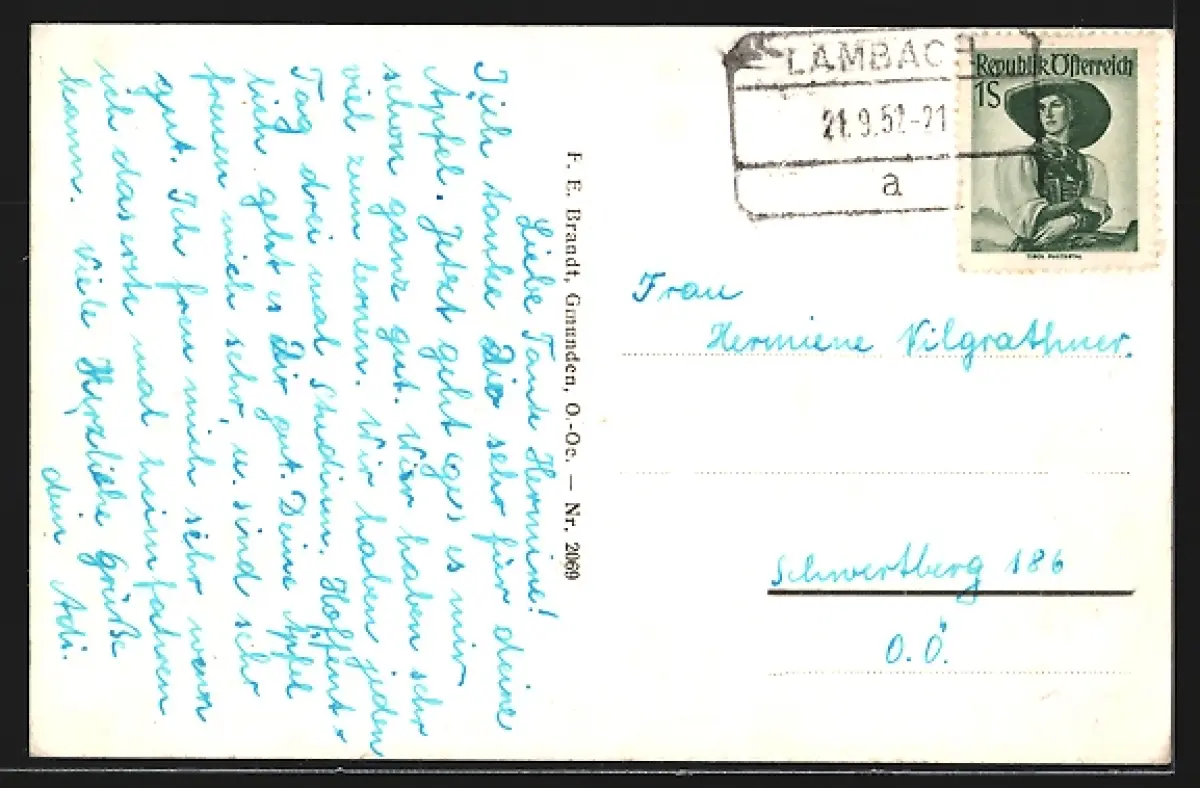 Liebe Tante Hermine!
Ich danke Dir sehr für deine
Äpfel. Jetzt geht es mir
schon ganz gut. Wir haben sehr
viel zum lernen. Wir haben jeden
Tag drei mal Studium. Hoffent-
lich geht es Dir gut. Deine Äpfel
freuen mich sehr, u. sind sehr
gut. Ich freu mich sehr wenn
ich das erste mal heimfahren
kann. Viele Herzliche Grüße
dein Adi.
F. E. Brandt, Gmunden, O.-Oe. — Nr. 2069
LAMBACH
21.9.51-21
a
Republik Österreich
1S
TIROL PUSTERTAL
Frau
Hermiene Vilgrathner.
Schwertberg 186
O.Ö.